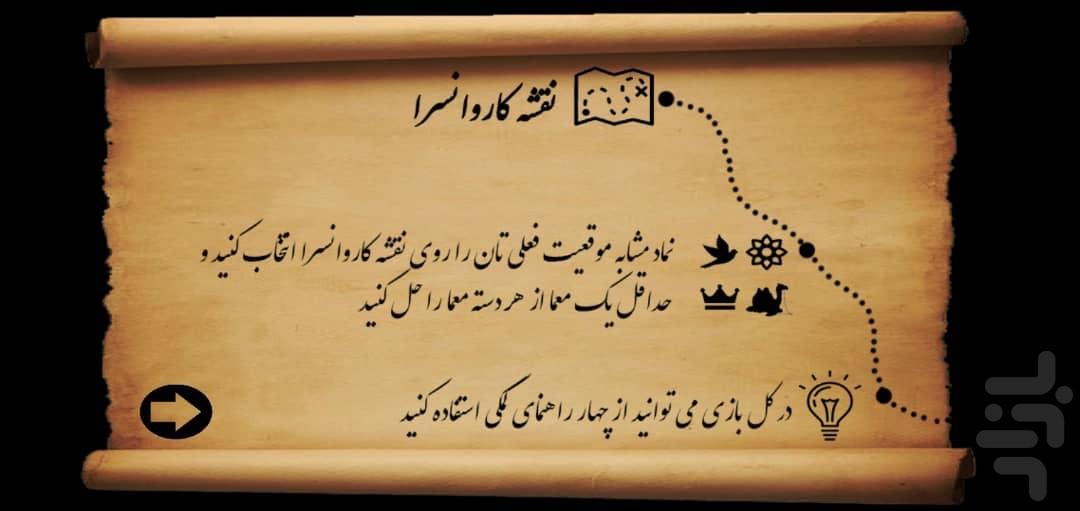 نقشه کاروانسرا
نماد مشابه موقعیت فعلی تان را روی نقشه کاروانسرا انتخاب کنید و
حداقل یک معما از هر دسته معما را حل کنید
در کل بازی می توانید از چهار راهنمای کمکی استفاده کنید
بازار